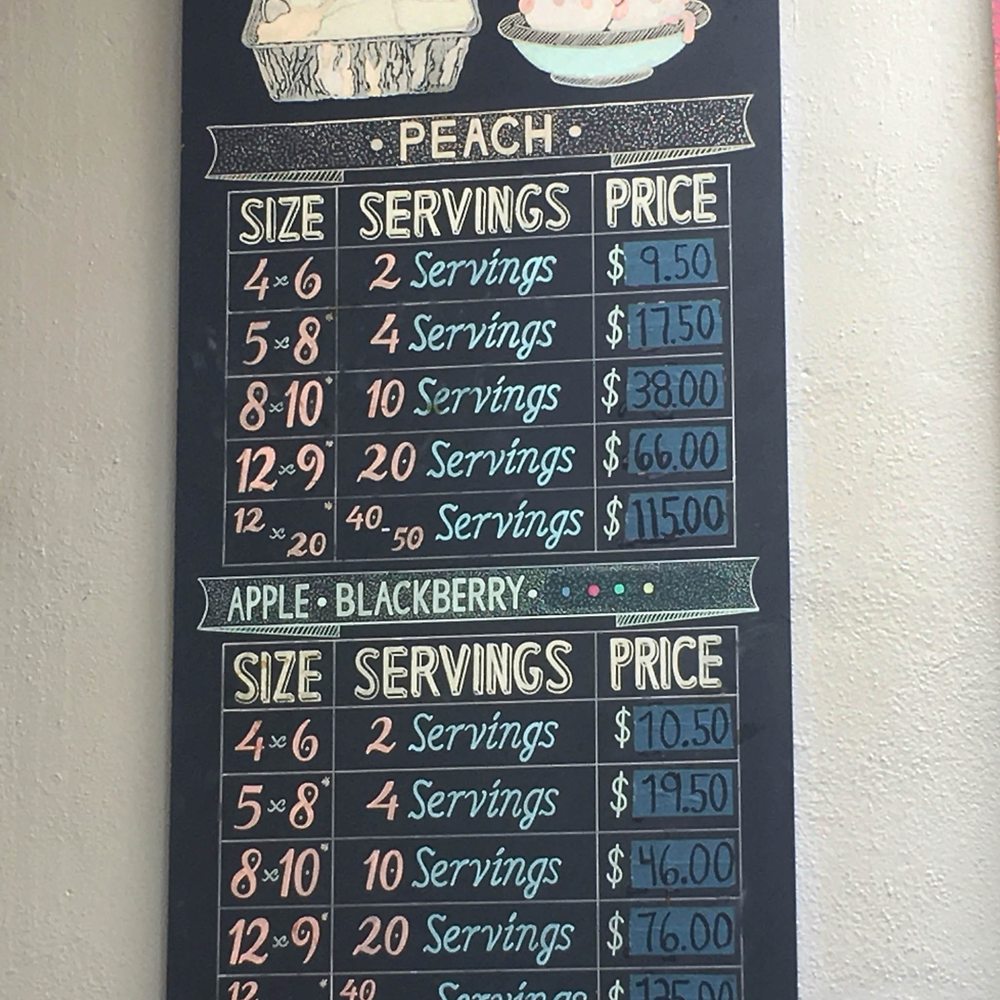 • PEACH •
SIZE SERVINGS PRICE
4x6 2 Servings $ 9.50
5x8* 4 Servings $ 17.50
8x10* 10 Servings $ 38.00
12x9* 20 Servings $ 66.00
12x20* 40-50 Servings $ 115.00
APPLE • BLACKBERRY • • • • •
SIZE SERVINGS PRICE
4x6 2 Servings $ 10.50
5x8* 4 Servings $ 19.50
8x10* 10 Servings $ 46.00
12x9* 20 Servings $ 76.00
12 * 40 Servings $ 125.00